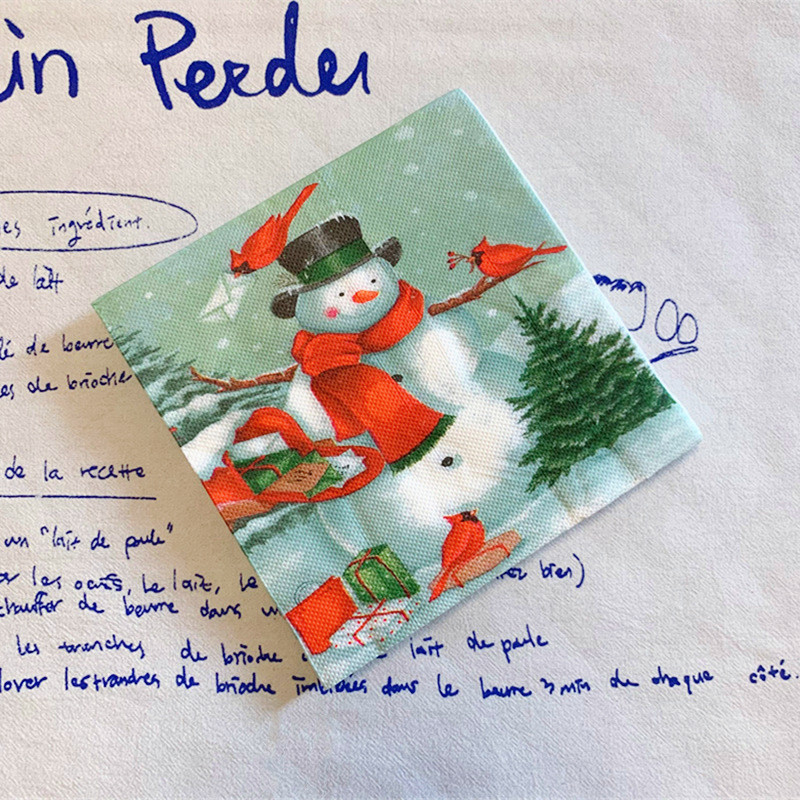 in Perdu
es ingrédient.
de lait
lé de beurre
es de brioche
de la recette
un "lait de poule"
les oeufs, le lait, le
chauffer de beurre dans un
bien)
les tranches de brioche lait de poule
les tranches de brioche imbibées dans le beurre 3 min de chaque côté.